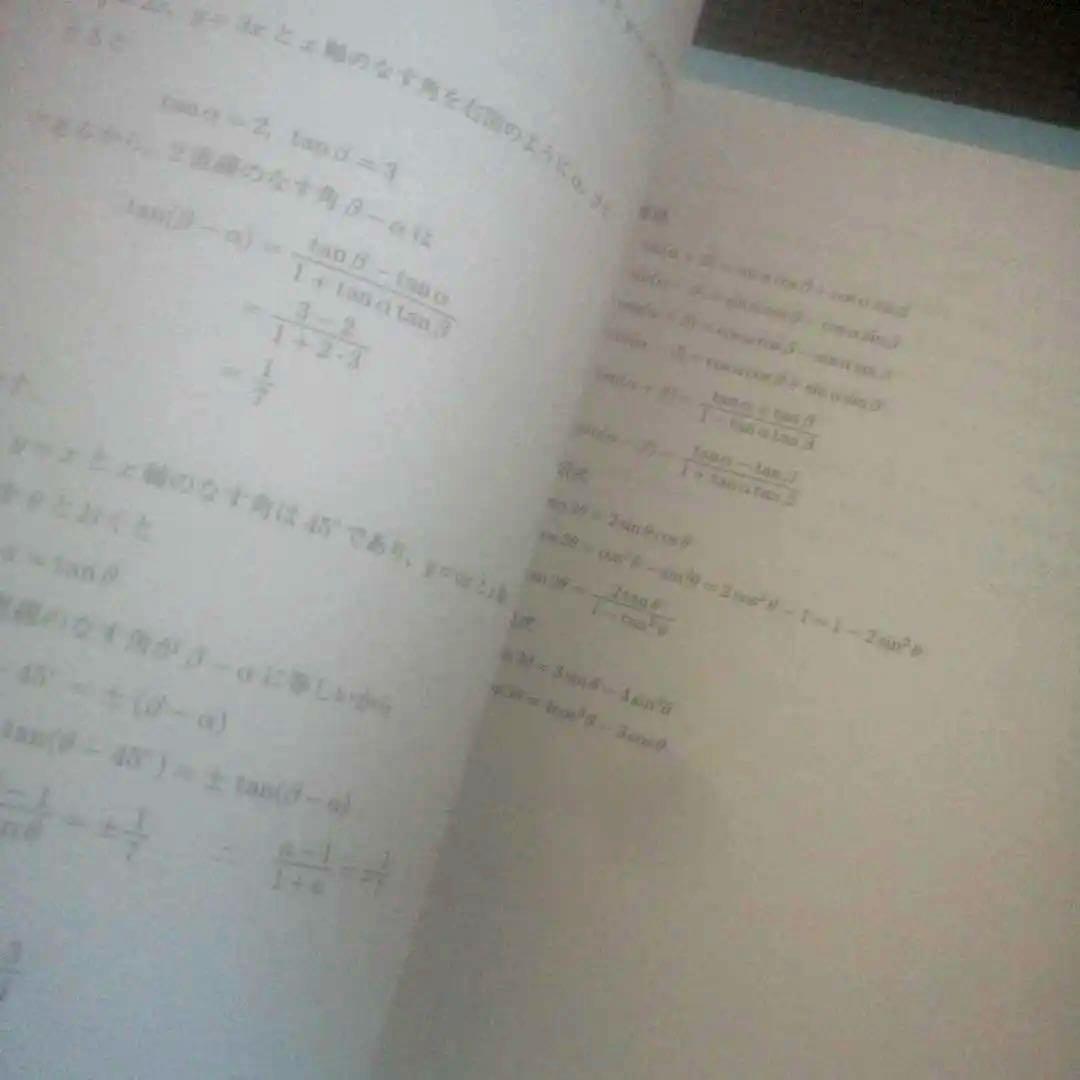 y = 3x と x 軸のなす角を右図のように α, β と
すると
tan α = 2, tan β = 3
であるから, 2直線のなす角 β − α は
tan(β − α) = \frac{tan β − tan α}{1 + tan α tan β}
= \frac{3 − 2}{1 + 2・3}
= \frac{1}{7}
です.
y = x と x 軸のなす角は 45° であり, y = ax と x
θ とおくと
a = tan θ
直線のなす角が β − α に等しいから
45° = ± (β − α)
tan(θ − 45°) = ± tan(β − α)
− 1 = ± \frac{1}{7} ∴ \frac{a − 1}{1 + a} =
定理
sin(α + β) = sin α cos β + cos α sin β
sin(α − β) = sin α cos β − cos α sin β
cos(α + β) = cos α cos β − sin α sin β
cos(α − β) = cos α cos β + sin α sin β
tan(α + β) = \frac{tan α + tan β}{1 − tan α tan β}
tan(α − β) = \frac{tan α − tan β}{1 + tan α tan β}
公式
sin 2θ = 2 sin θ cos θ
cos 2θ = cos²θ − sin²θ = 2 cos²θ − 1 = 1 − 2 sin²θ
tan 2θ = \frac{2 tan θ}{1 − tan²θ}
公式
sin 3θ = 3 sin θ − 4 sin³θ
cos 3θ = 4 cos³θ − 3 cos θ